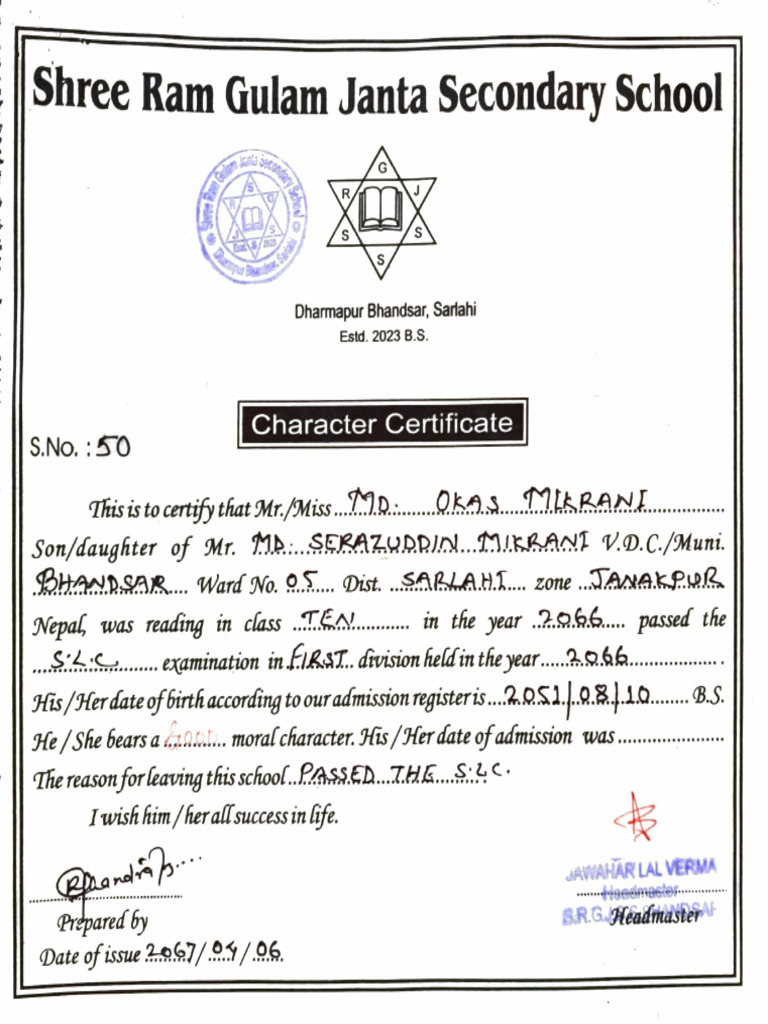 Shree Ram Gulam Janta Secondary School
Shree Ram Gulam Janta Secondary School
R G J S S S
Estd. 2023
Dharmapur Bhandsar, Sarlahi
G
R J
S S
S
Dharmapur Bhandsar, Sarlahi
Estd. 2023 B.S.
Character Certificate
S.No. : 50
This is to certify that Mr./Miss MD. OKAS MIKRANI
Son/daughter of Mr. MD. SERAZUDDIN MIKRANI V.D.C./Muni.
BHANDSAR Ward No. 05 Dist. SARLAHI zone JANAKPUR
Nepal, was reading in class TEN in the year 2066 passed the
S.L.C examination in FIRST division held in the year 2066 .
His / Her date of birth according to our admission register is 2051/08/10 B.S.
He / She bears a GOOD moral character. His / Her date of admission was
The reason for leaving this school PASSED THE S.L.C.
I wish him / her all success in life.
JAWAHAR LAL VERMA
Headmaster
S.R.G.J.S.S. BHANDSAR
Prepared by
Headmaster
Date of issue 2067/04/06.